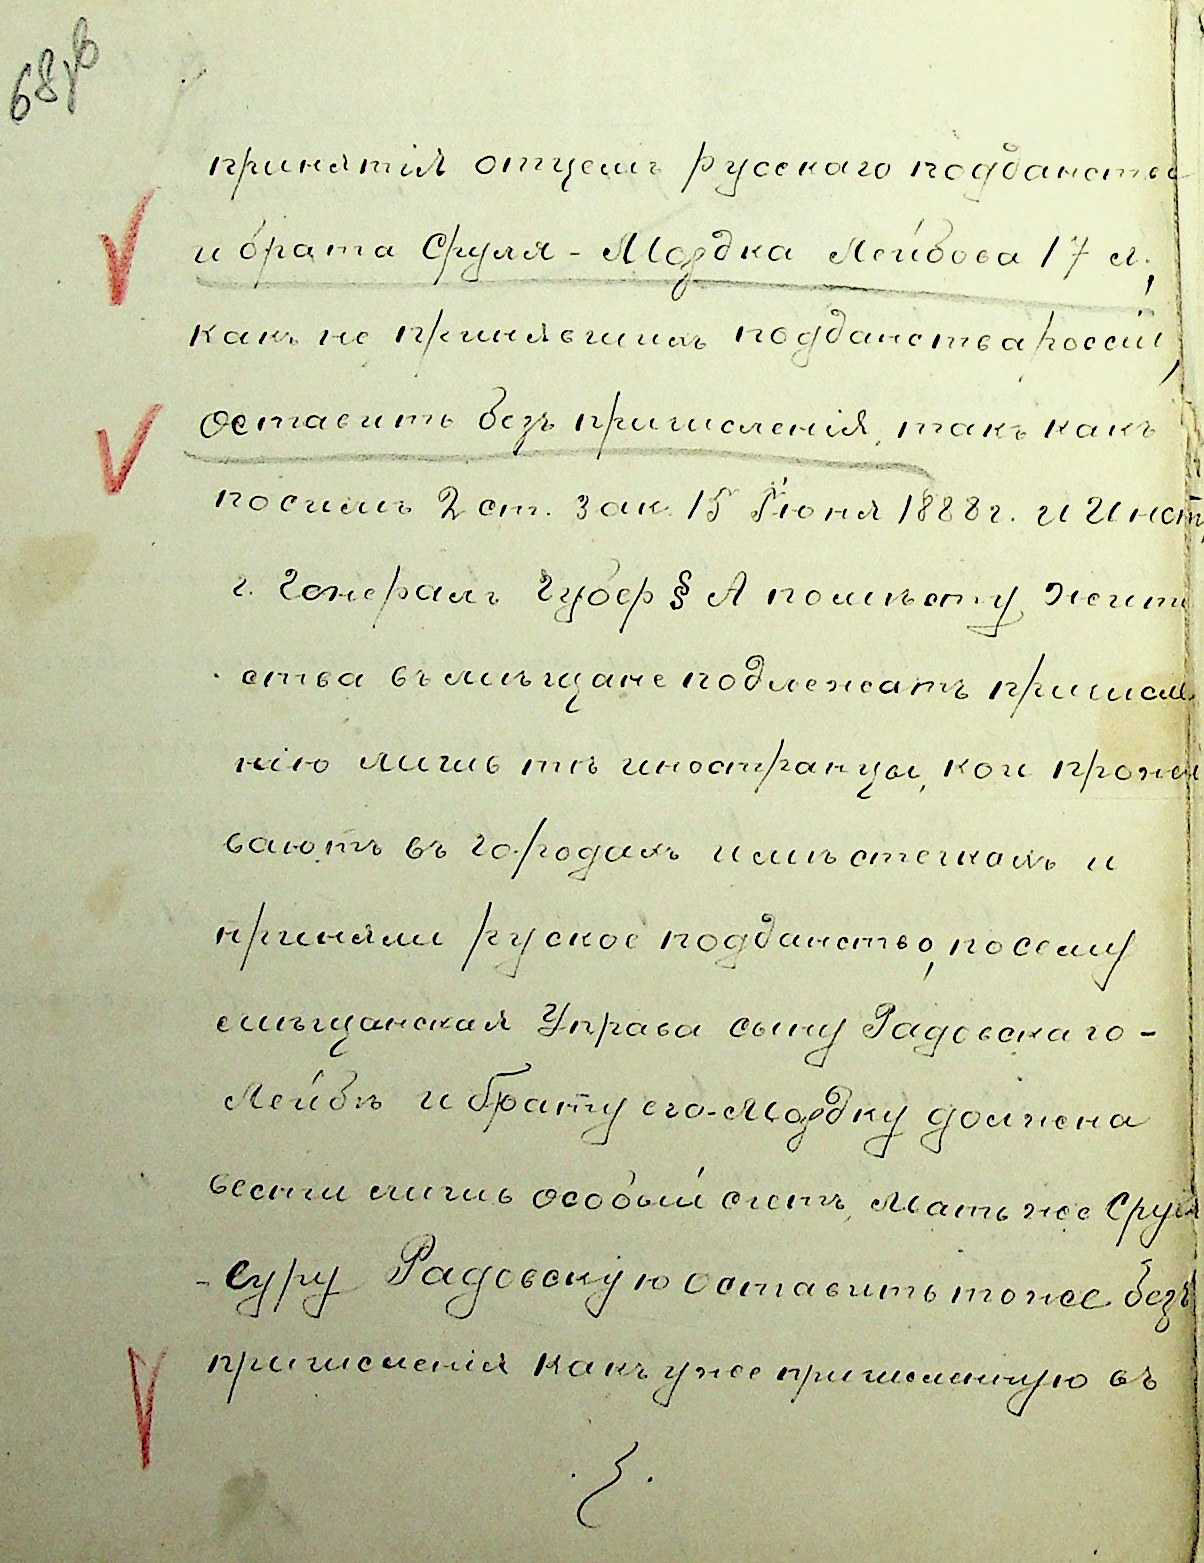 68 об
принятія отцемъ русскаго подданства
и брата Сруля-Мордка Лейбова 17 л.,
какъ не принявшихъ подданства россіи,
оставить безъ причисленія, такъ какъ
посилъ 2 ст. зак. 15 Іюня 1888 г. и Инст
г. Генералъ Губер § А помѣсту жит
ства въ мѣщане подлежатъ причисле
нію лишь тѣ иностранцы, кои прожи
ваютъ въ городахъ имѣстечкахъ и
приняли руское подданство, посему
мѣщанская Управа сыну Радовскаго-
Лейбѣ и брату его-Мордку должна
вести лишь особый счетъ, Мать же Сруля
-Суру Радовскую оставить тоже безъ
причисленія какъ уже причисленную въ